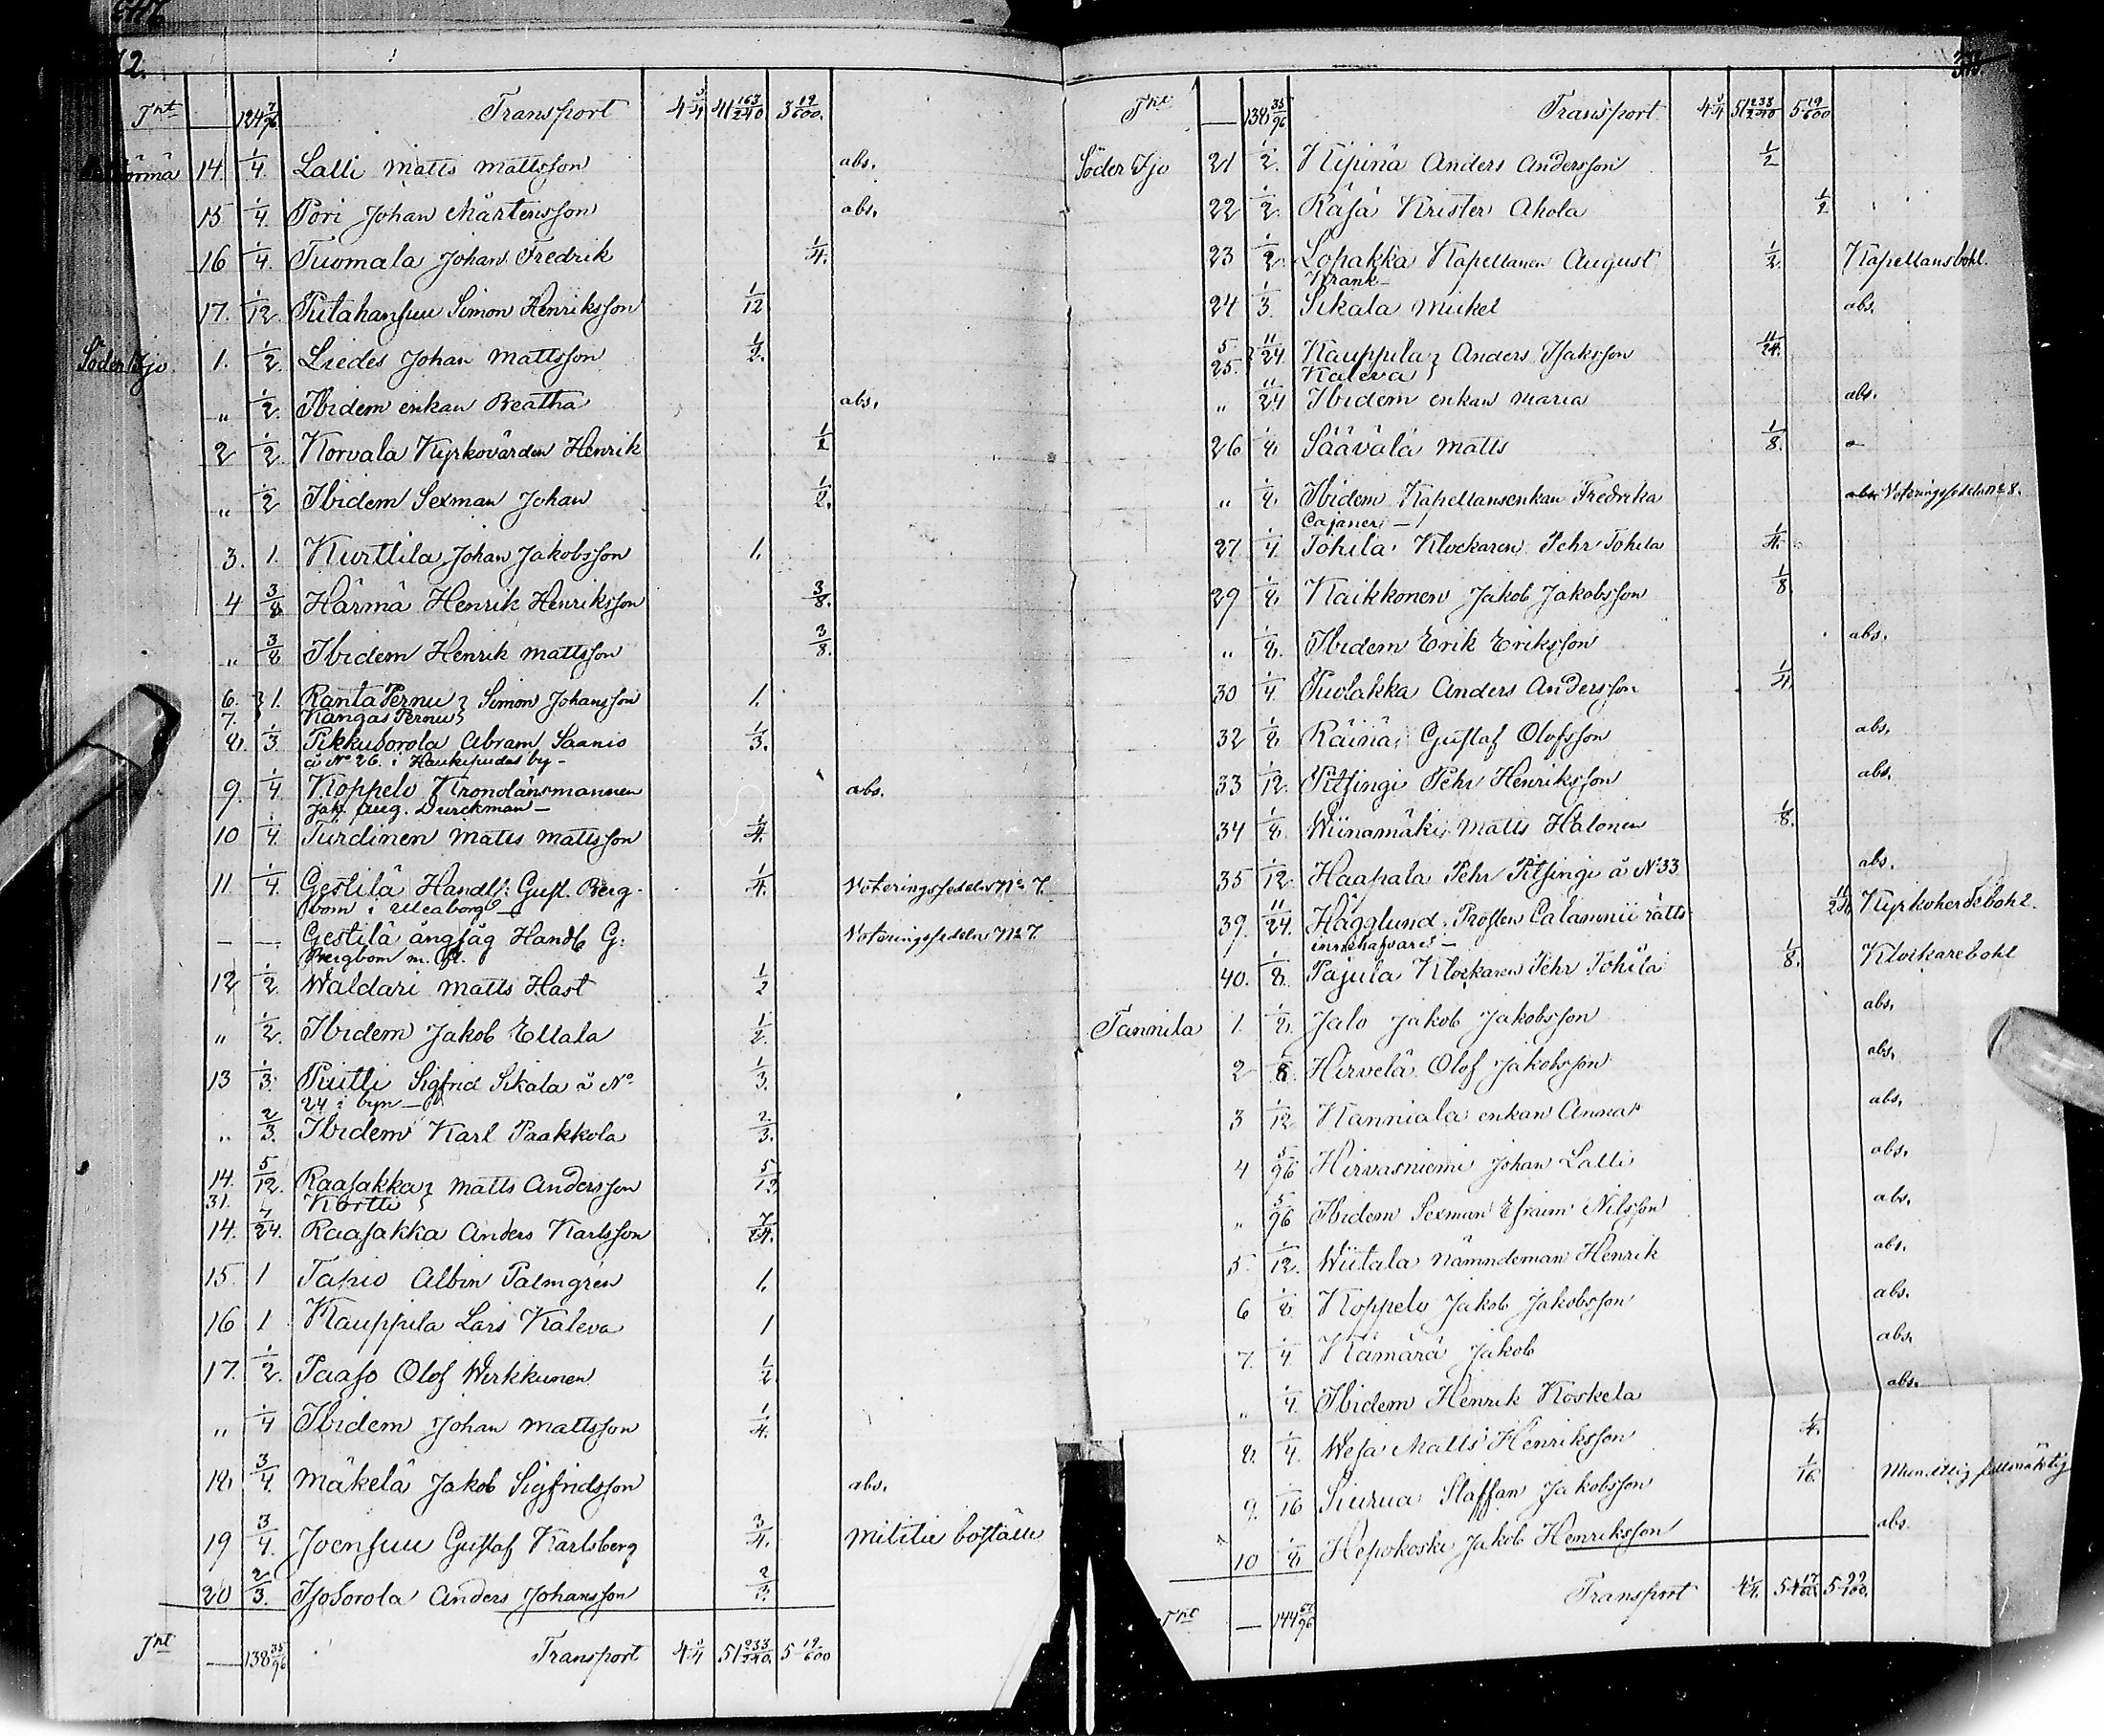 12.
Trt — 124 7/96 Transport 4 3/4 41 163/240 3 19/600.
14. 1/4. Lalli Matts Mattsson abs.
15 1/4. Pori Johan Mårtensson abs.
16 1/4. Tuomala Johan Fredrik 1/4.
17. 1/12 Putahansuu Simon Henriksson 1/12
Söder Ijo. 1. 1/2. Liedes Johan Mattsson 1/2.
„ 1/2. Ibidem enkan Beatha abs.
2 1/2. Korvala Kyrkovärden Henrik 1/2
„ 1/2 Ibidem Sexman Johan 1/2.
3. 1. Kurttila Johan Jakobsson 1.
4 3/8 Härmä Henrik Henriksson 3/8.
„ 3/8 Ibidem Henrik Mattsson 3/8.
6. } 1. Ranta Pernu } Simon Johansson 1.
7. Kangas Pernu }
8. 1/3. Pikkusorola Abram Saanio 1/3.
å No 26. i Haukipudas by —
9. 1/4. Koppelo Kronolänsmannen abs.
Jak. Aug. Durckman —
10 1/4. Turdinen Matts Mattsson 1/4.
11. 1/4. Gestilä Handl: Gust. Berg- 1/4. Voteringssedeln No 7.
bom i Uleaborg —
— — Gestilä ångsåg Handl G: Voteringssedeln No 7.
Bergbom m. fl.
12 1/2. Waldari Matts Hast 1/2
„ 1/2. Ibidem Jakob Ellala 1/2.
13 1/3. Puitti Sigfrid Sikala å No 1/3.
24 i byn —
„ 2/3. Ibidem Karl Paakkola 2/3.
14. 5/12. Raasakka } Matts Andersson 5/12
31. Kortti }
14. 7/24. Raasakka Anders Karlsson 7/24.
15. 1 Tapio Albin Palmgren 1.
16 1 Kauppila Lars Kaleva 1
17. 1/2. Paaso Olof Wirkkunen 1/2
„ 1/4 Ibidem Johan Mattsson 1/4.
18. 3/4. Mäkelä Jakob Sigfridsson abs.
19 3/4. Joensuu Gustaf Karlsberg 3/4. Militie boställe
20 2/3. Isosorola Anders Johansson 2/3.
Trt — 138 35/96 Transport 4 3/4 51 233/240. 5 19/600
Trt — 138 35/96 Transport 4 3/4 51 233/240 5 19/600
Söder Ijo 21 1/2. Kipinä Anders Andersson 1/2
22 1/2. Räsä Krister Ahola 1/2
23 1/2. Lopakka Kapellanen August 1/2. Kapellansbohl.
Krank —
24 1/3. Sikala Mickel abs.
5. } 11/24 Kauppila } Anders Isaksson 11/24.
25. Kaleva }
„ 11/24 Ibidem enkan Maria abs.
26 1/8. Säävälä Matts 1/8.
„ 1/8. Ibidem Kapellansenkan Fredrika abs. Voteringssedeln No 8.
Cajaner —
27 1/4. Tohila Klockaren Pehr Tohila 1/4.
29 1/8. Kaikkonen Jakob Jakobsson 1/8
„ 1/8. Ibidem Erik Eriksson abs.
30 1/4. Puolakka Anders Andersson 1/4.
32 1/8 Räinä Gustaf Olofsson abs.
33 1/12. Pitsingi Pehr Henriksson abs.
34 1/8. Wiinamäki Matts Halonen 1/8.
35 1/12 Haapala Pehr Pitsingi å No 33 abs.
39. 11/24. Hägglund Prosten Calamnii rätts- 11/24. Kyrkoherdebohl.
innehafvares —
40. 1/8. Pajula Klockaren Pehr Tohila 1/8. Klockarebohl
Tannila 1. 1/8. Jalo Jakob Jakobsson abs.
2 1/8. Hirvelä Olof Jakobsson abs.
3 1/12 Kanniala enkan Anna abs.
4 5/96 Hirvasniemi Johan Lalli abs.
„ 5/96 Ibidem Sexman Efraim Nilsson abs.
5. 1/12. Wiitala Nämndeman Henrik abs.
6 1/8 Koppelo Jakob Jakobsson abs.
7. 1/4. Kämärä Jakob abs.
„ 1/4. Ibidem Henrik Koskela abs.
8. 1/4. Wesa Matts Henriksson 1/4.
9. 1/16 Siurua Staffan Jakobsson 1/16. Muntlig fullmäktig
10 1/8. Hepokoski Jakob Henriksson abs.
Trt — 144 67/96 Transport